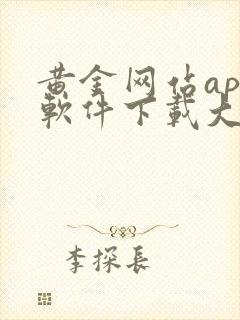 黄金网佔ap
軟件下載大
李探長